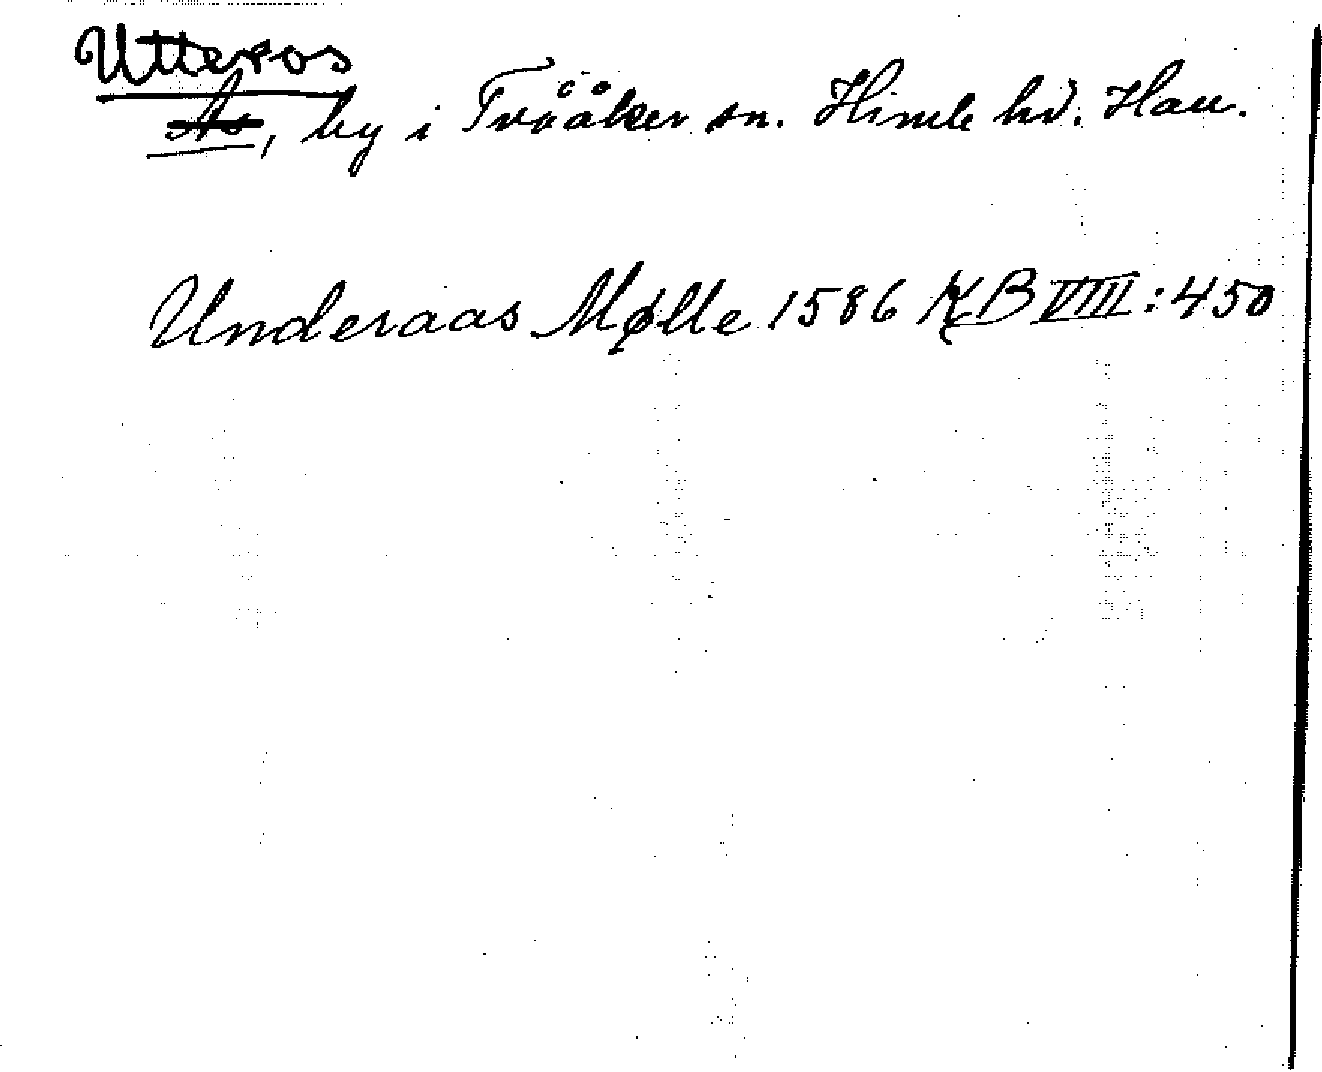 Utteros
As, by i Tvååker sn. Himle hd. Hall.
Underaas Mølle 1586 KB VIII:450